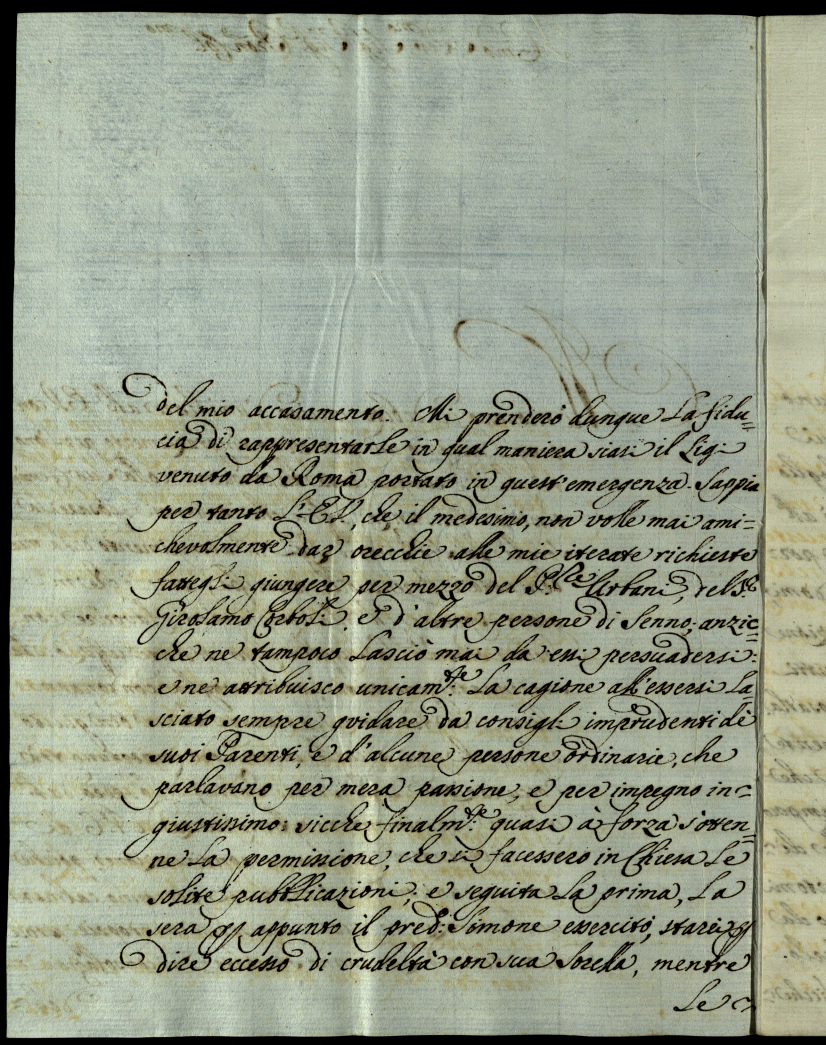 del mio accasamento. Mi prenderò dunque la fidu=
cia di rappresentarle in qual maniera siasi il Sig:
venuto da Roma portato in quest'emergenza. Sappia
per tanto L'E.V., che il medesimo, non volle mai ami=
chevolmente dar orecchie alle mie iterate richieste
fattegli giungere per mezzo del Urbani, del S.r
Girolamo Corboli, e d'altre persone di Senno; anzic=
che ne tampoco lasciò mai da essi persuadersi:
e ne attribuisco unicam.te la cagione all'essersi la=
sciato sempre guidare da consigli imprudenti de
suoi Parenti, e d'alcune persone ordinarie, che
parlavano per mera passione, e per impegno in=
giustissimo: sicche finalm.te quasi à forza s'otten=
ne la permissione, che si facessero in Chiesa le
solite pubblicazioni; e seguita la prima, la
sera appunto il pred: Simone essercitò, starei p
dire eccesso di crudeltà con sua Sorella, mentre
le